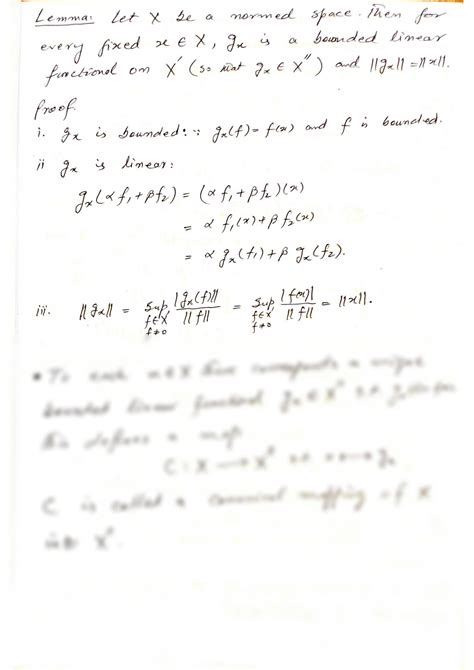 Lemma: Let X be a normed space. Then for
every fixed x ∈ X, gx is a bounded linear
functional on X' (so that gx ∈ X'') and ||gx|| = ||x||.
Proof.
i. gx is bounded: ∵ gx(f) = f(x) and f is bounded.
ii gx is linear:
gx(αf1 + βf2) = (αf1 + βf2)(x)
= αf1(x) + βf2(x)
= αgx(f1) + βgx(f2).
iii. ||gx|| = Sup f∈X' f≠0 |gx(f)| / ||f|| = Sup f∈X' f≠0 |f(x)| / ||f|| = ||x||.
• To each x ∈ X there corresponds a unique
bounded linear functional gx ∈ X''
this defines a map
C : X → X'' gx
C is called a canonical mapping of X
into X''.